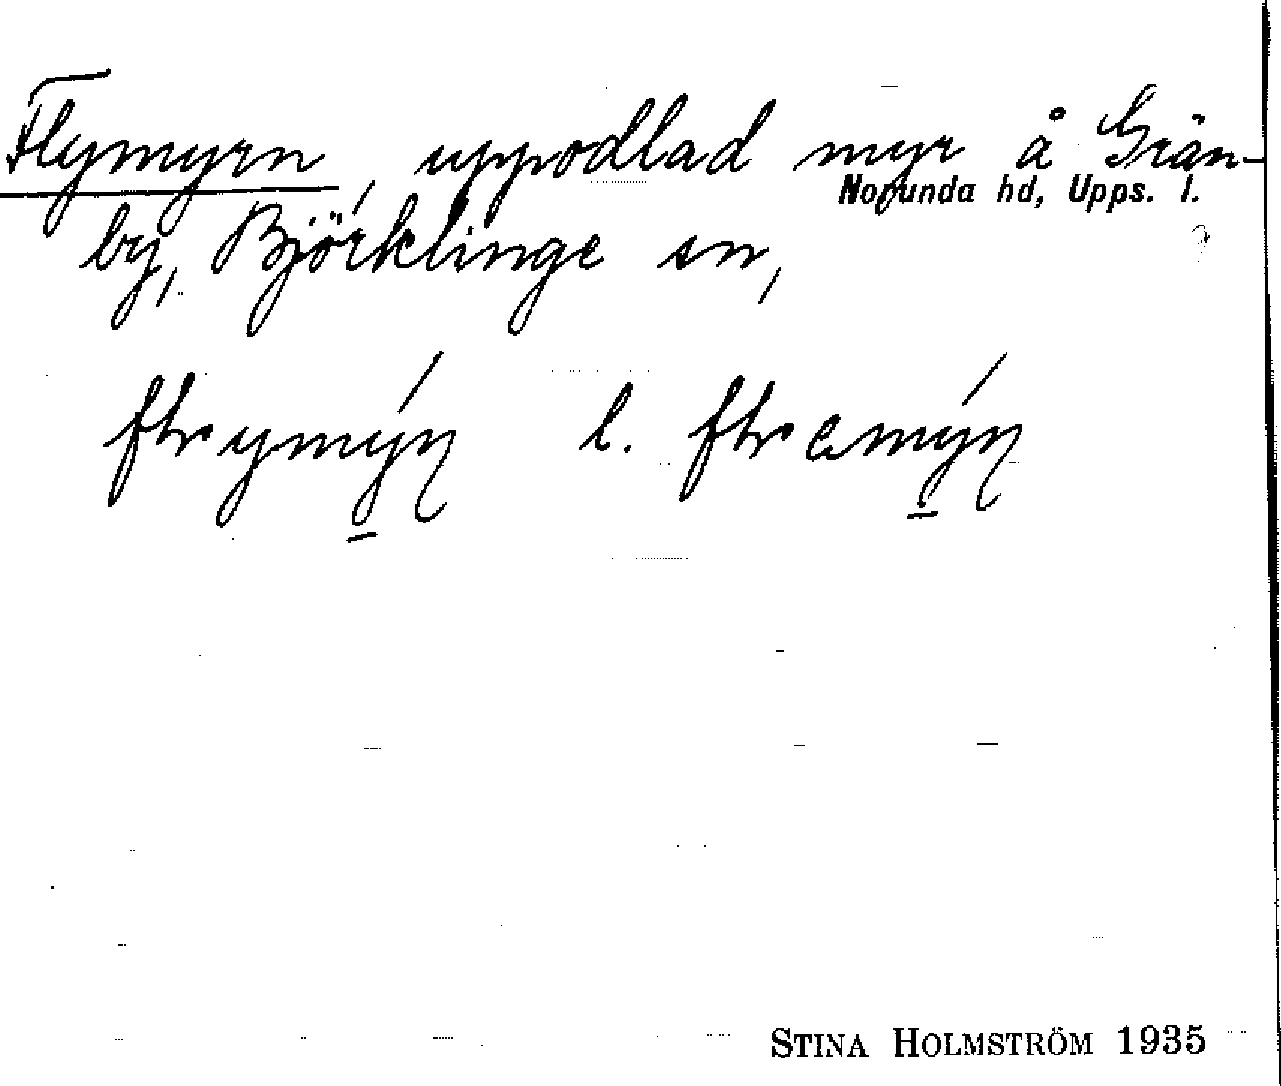 Flymyrn, uppodlad myr å Grän-
Norunda hd, Upps. l.
by, Björklinge sn,
l.
STINA HOLMSTRÖM 1935